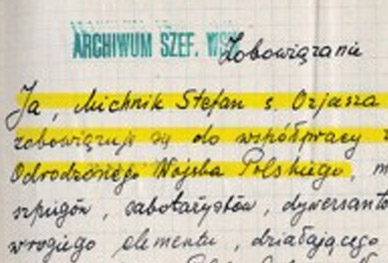 ARCHIWUM SZEF.
Zobowiązanie
Ja, Michnik Stefan s. Ozjasza
zobowiązuję się do współpracy z
Odrodzonego Wojska Polskiego,
szpiegów, sabotażystów, dywersantó
wrogiego elementu, działającego